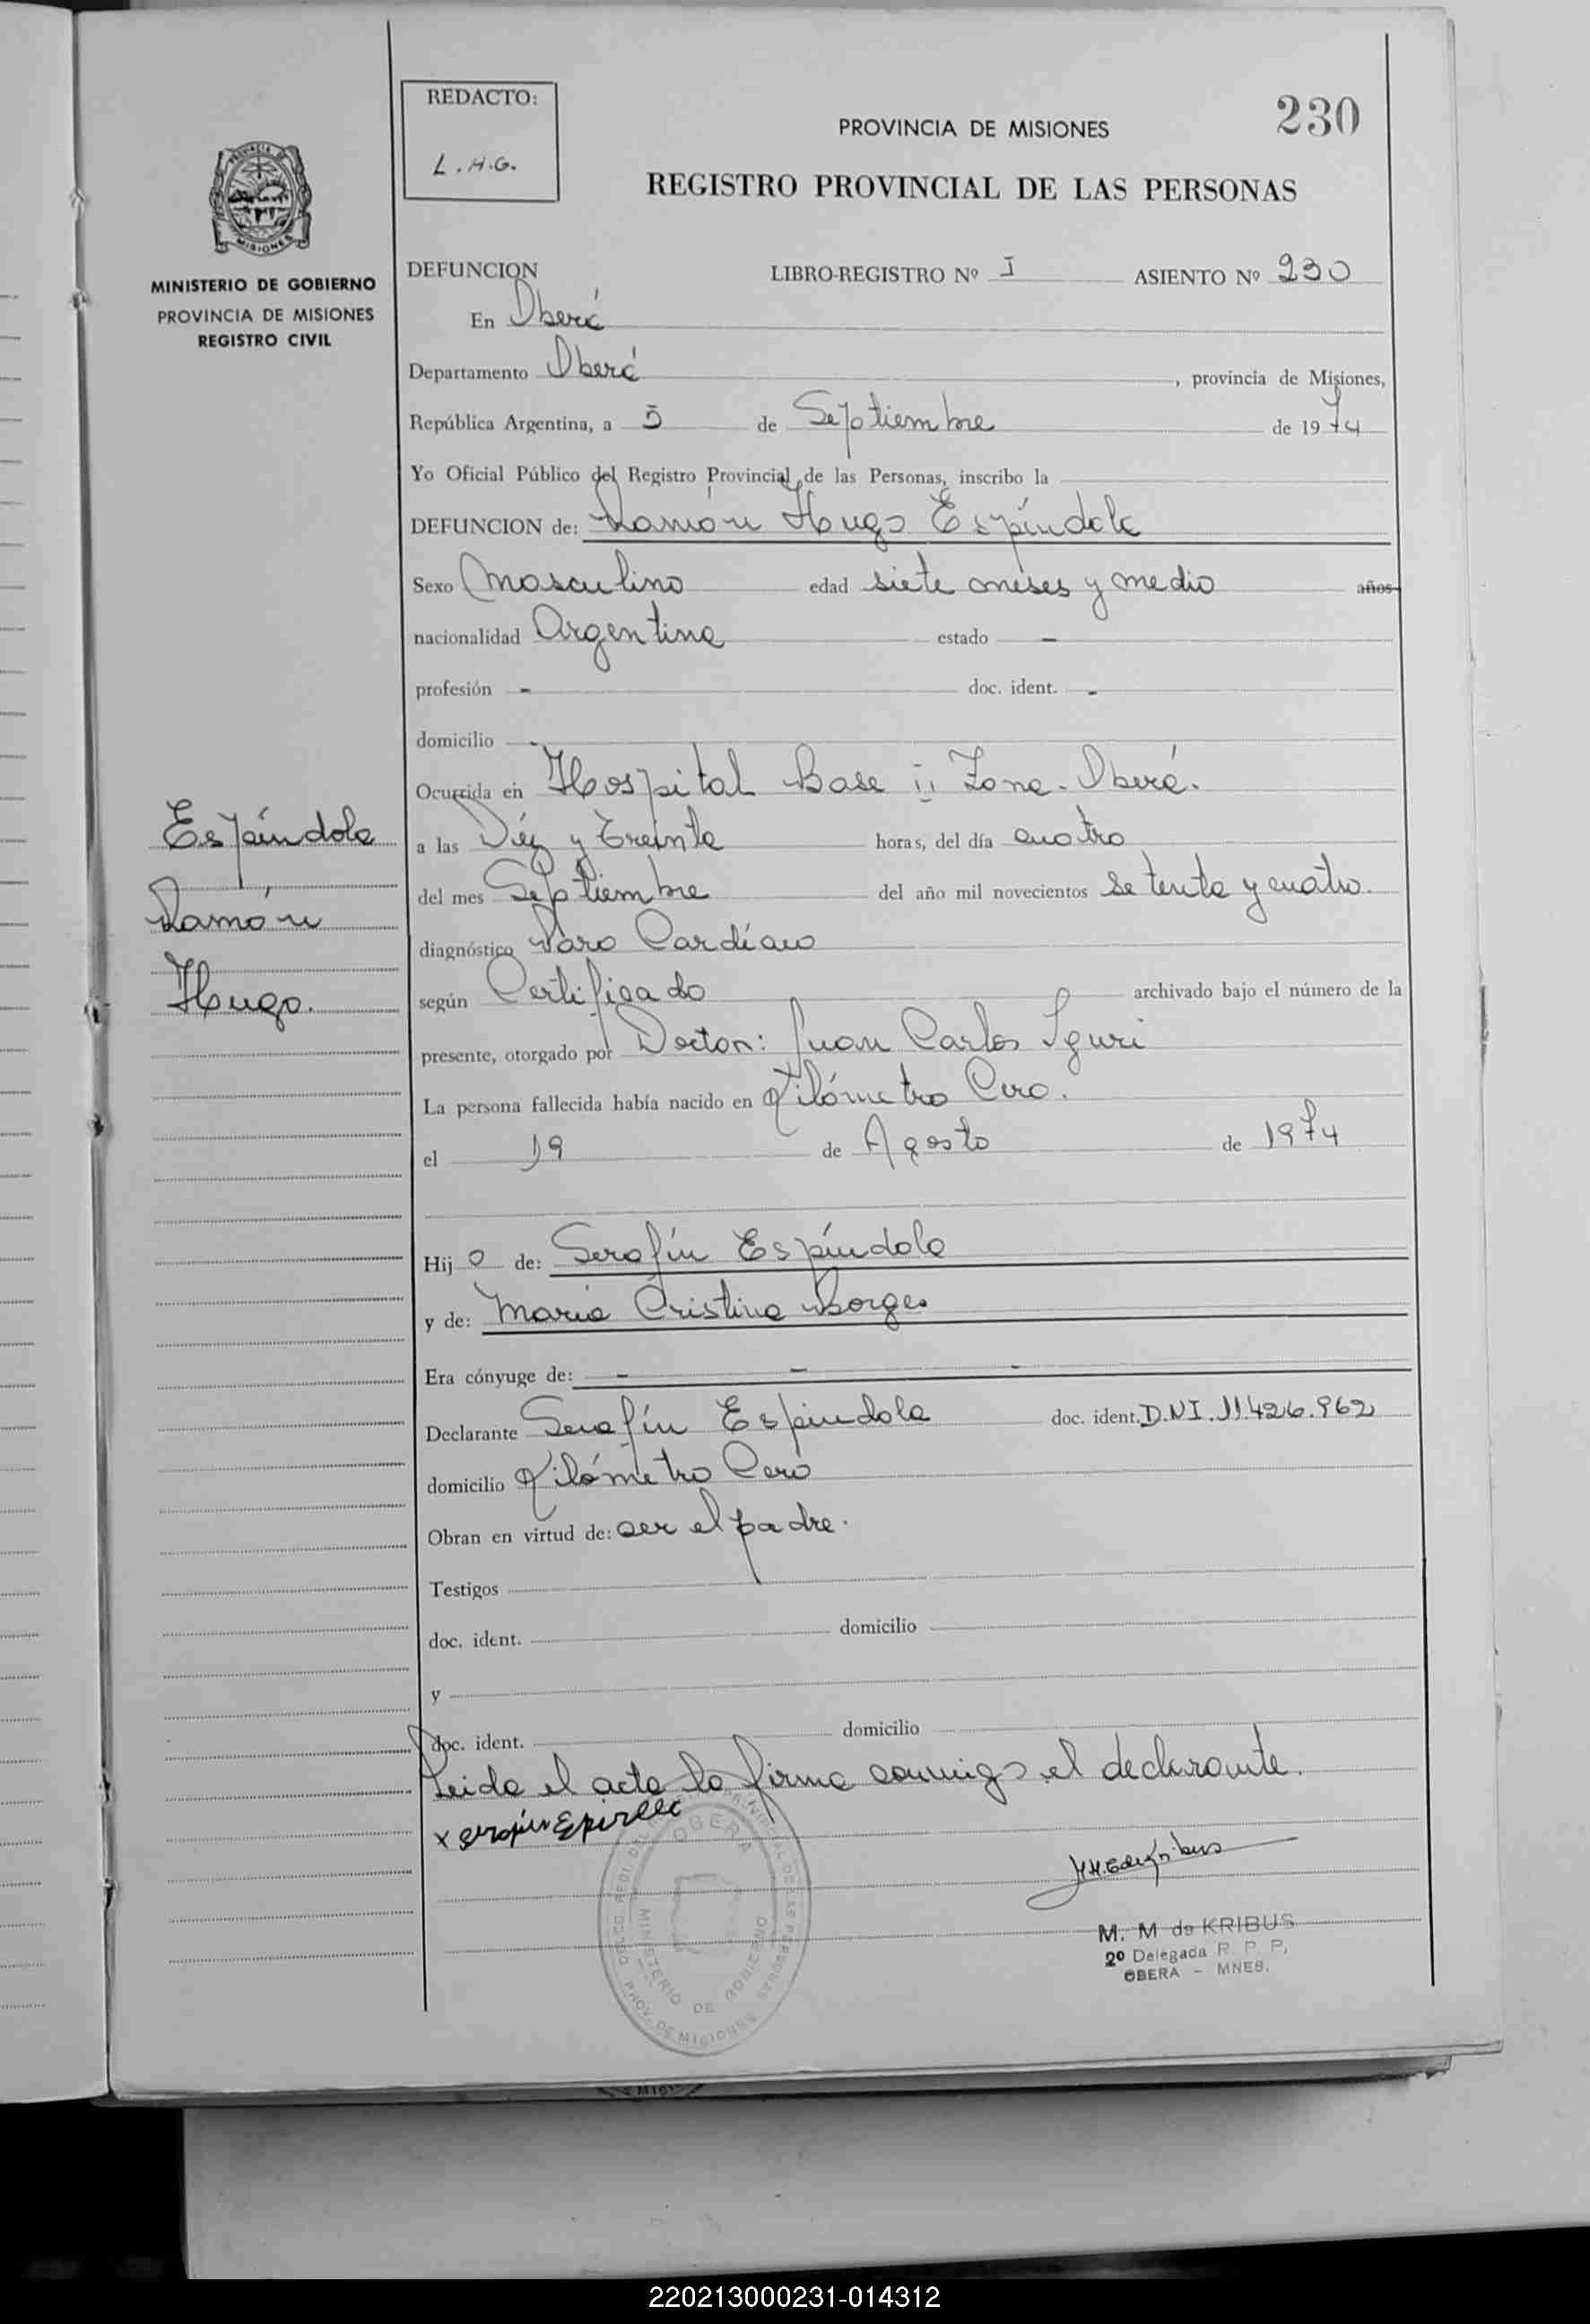 REDACTO:
L.H.G.
PROVINCIA DE MISIONES
230
REGISTRO PROVINCIAL DE LAS PERSONAS
MINISTERIO DE GOBIERNO
PROVINCIA DE MISIONES
REGISTRO CIVIL
DEFUNCION LIBRO-REGISTRO Nº I ASIENTO Nº 230
En Oberá
Departamento Oberá, provincia de Misiones,
República Argentina, a 5 de Septiembre de 1974
Yo Oficial Público del Registro Provincial de las Personas, inscribo la
DEFUNCION de: Ramón Hugo Espíndola
Sexo Masculino edad siete meses y medio años
nacionalidad Argentina estado -
profesión - doc. ident. -
domicilio -
Ocurrida en Hospital Base II Zona - Oberá.
a las Diéz y Treinta horas, del día cuatro
del mes Septiembre del año mil novecientos Setenta y cuatro.
diagnóstico Paro Cardíaco
según Certificado archivado bajo el número de la
presente, otorgado por Doctor: Juan Carlos Iguri
La persona fallecida había nacido en Kilómetro Cero.
el 19 de Agosto de 1974
Hijo de: Serafín Espíndola
y de: María Cristina Borges
Era cónyuge de: - - -
Declarante Serafín Espíndola doc. ident. D.N.I. 11.426.962
domicilio Kilómetro Cero
Obran en virtud de: ser el padre.
Testigos
doc. ident. domicilio
y
doc. ident. domicilio
Leida el acta la firma conmigo el declarante.
Espíndola
Ramón
Hugo.
OBERA
MINISTERIO DE GOBIERNO
PROV. DE MISIONES
M. M de KRIBUS
2º Delegada R P P,
OBERA - MNES.
220213000231-014312